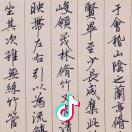 于會稽山陰之蘭亭脩
賢畢至少長咸集此
峻領茂林脩竹
映帶左右引以為流觴
坐其次雖無絲竹管